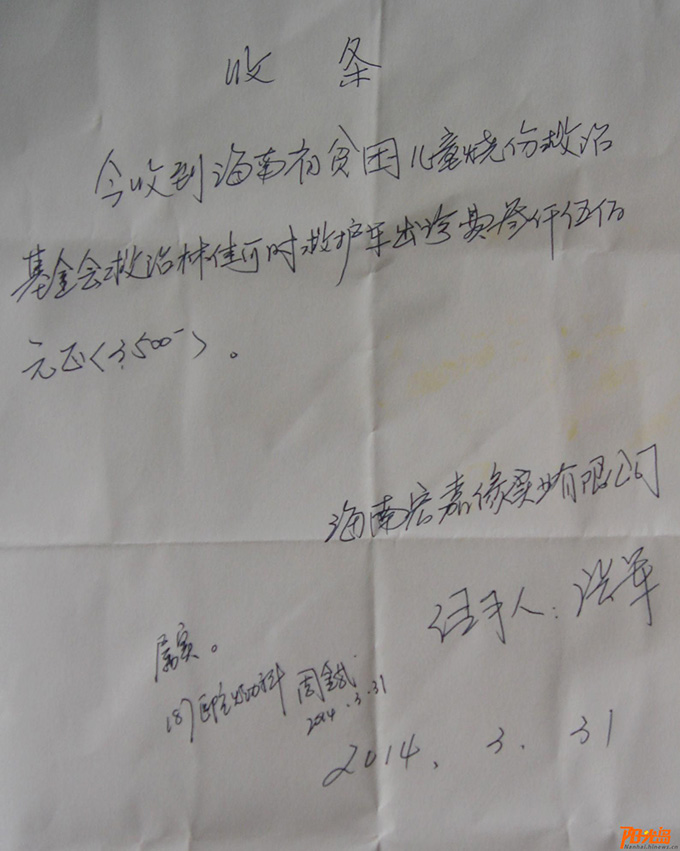 收 条
今收到海南初贫困儿童烧伤救治
基金会救治林佳可时救护车出诊费叁仟伍佰
元正<3500->。
海南宏嘉缘实业有限公司
经手人:洪军
属实。
187医院烧伤科 周金武
2014.3.31
2014. 3. 31
阳光岛
hinews.cn